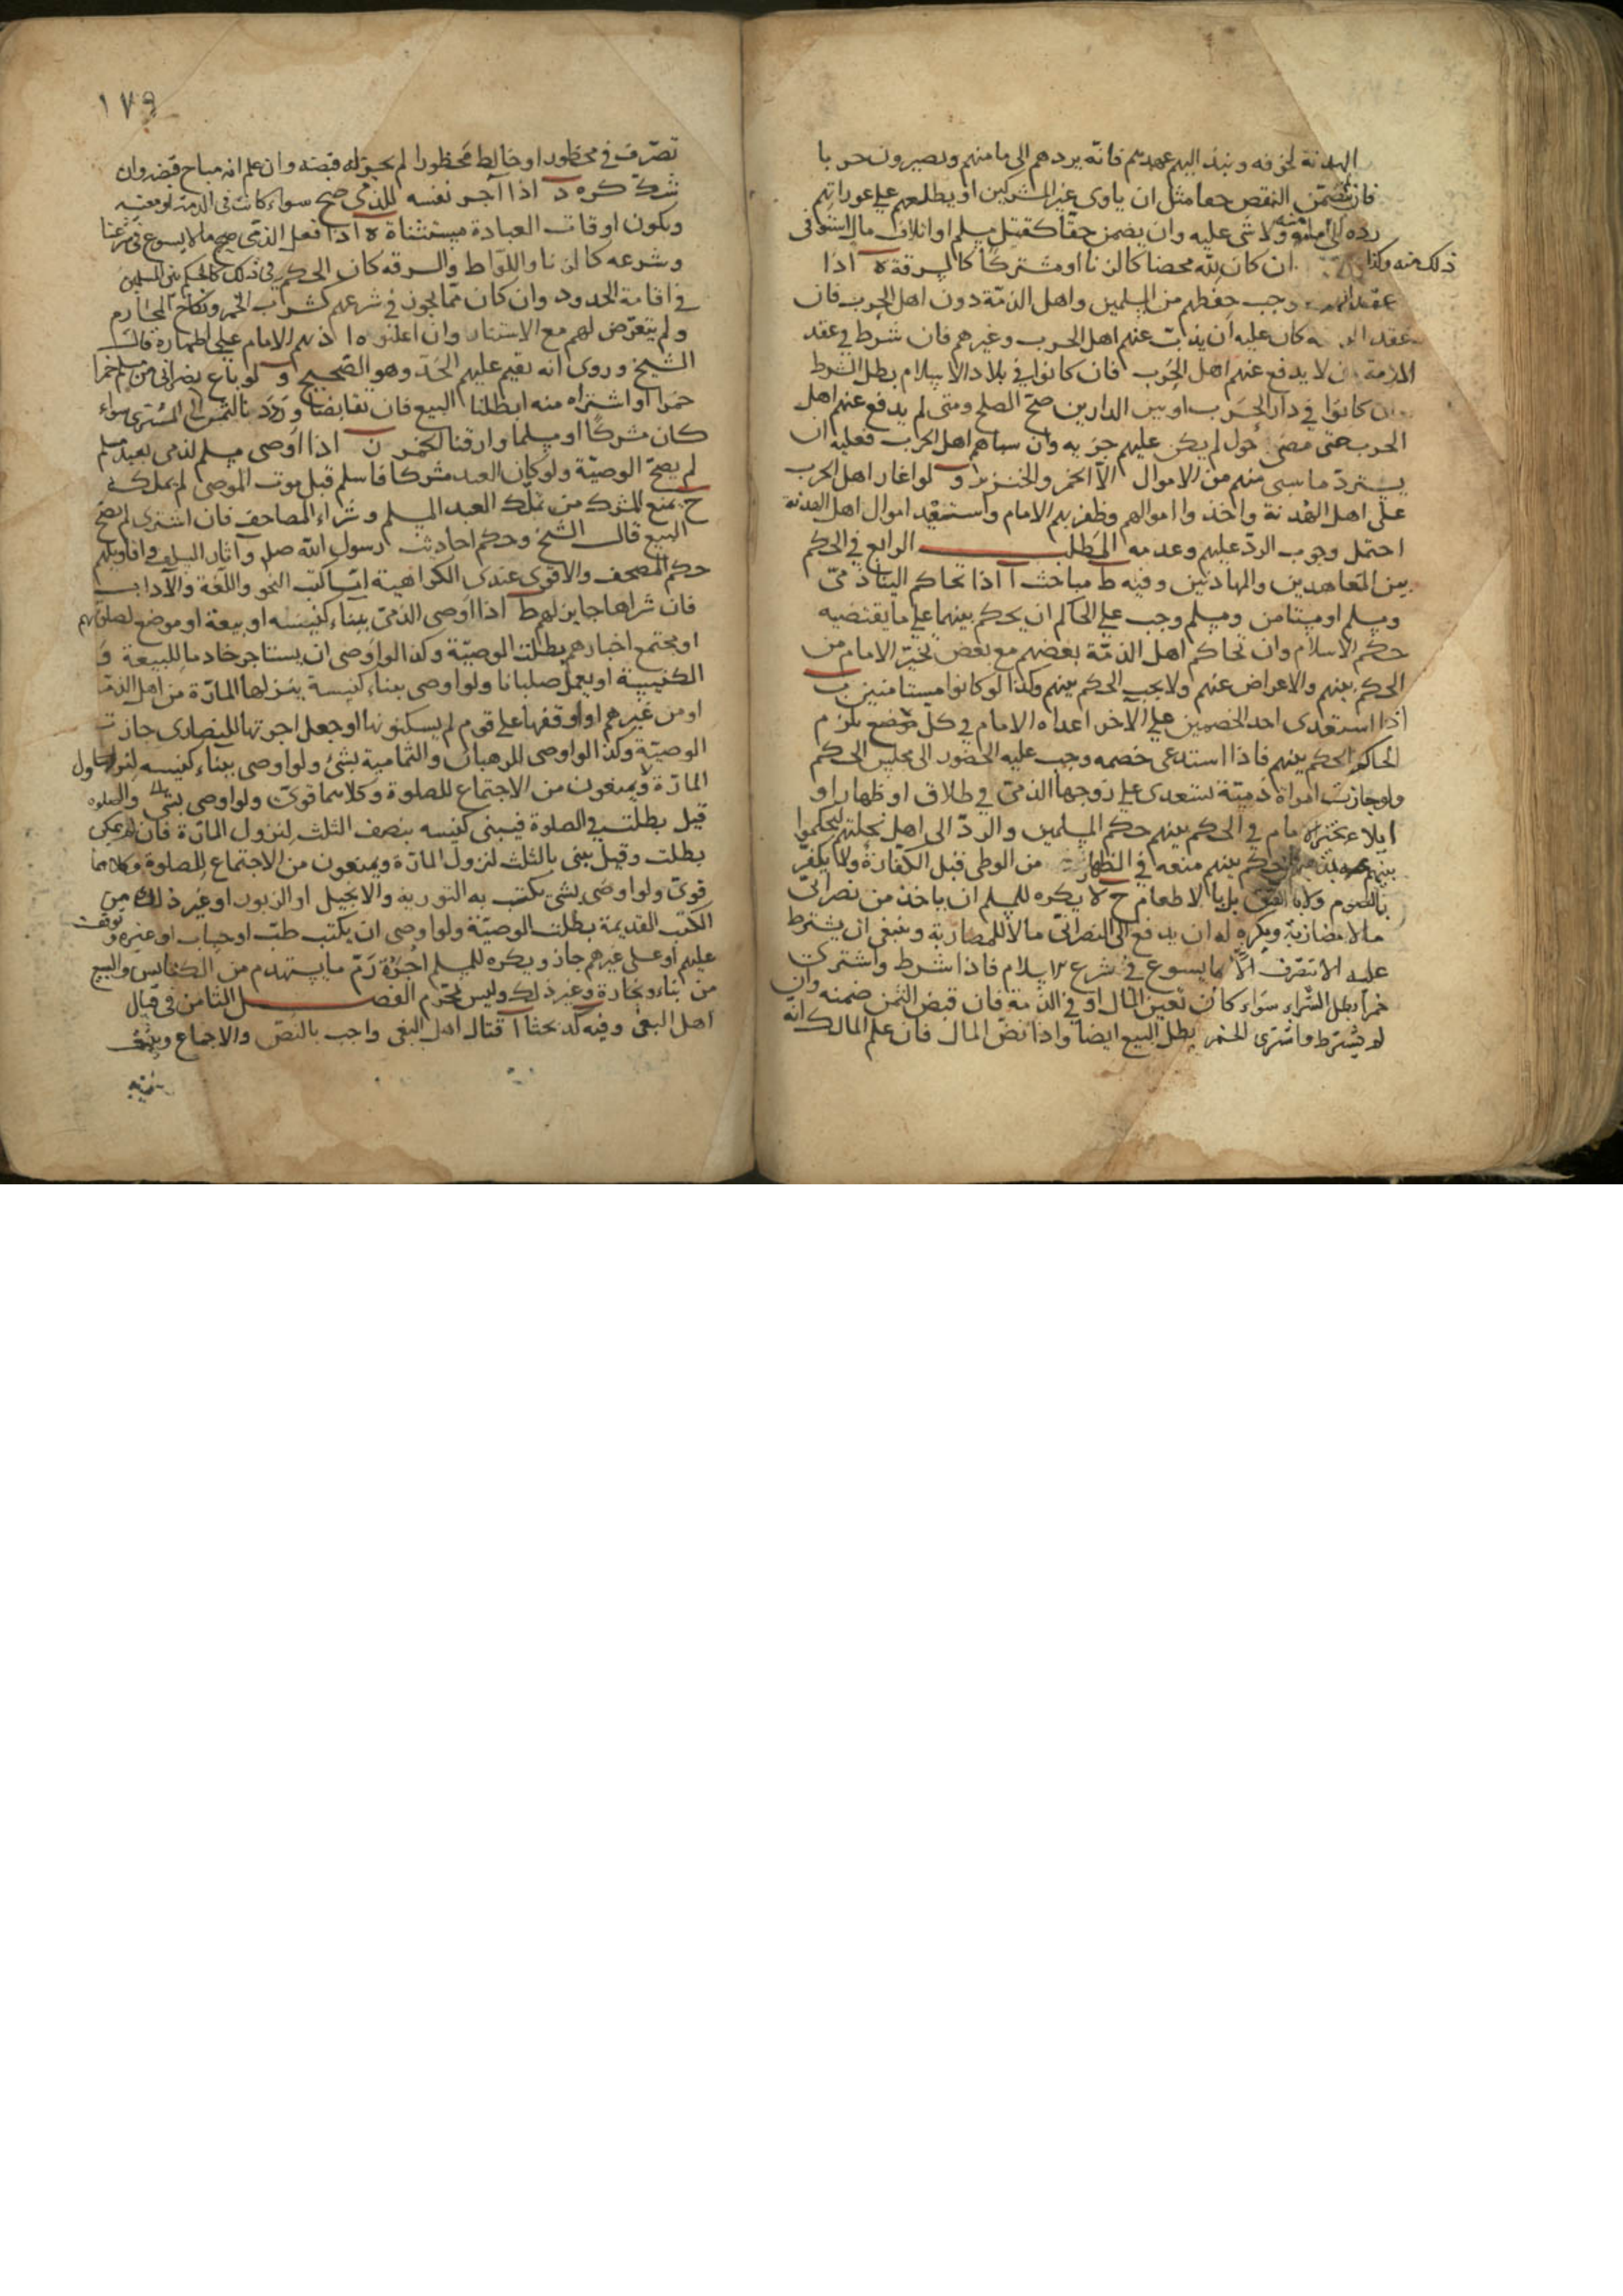 الهدنة لخوفه ونبذ اليهم عهدهم فانه يردهم الى مامنهم ويصيرون حربا
فان تضمن النقص حقا مثل ان ياوى عين المشركين او يطلعهم على عوراتهم
رده الى مامنه ولا شى عليه وان يضمن حقا كقتل مسلم او اتلاف مال استوفى
ذلك منه وكذا ان كان لله محضا كالزنا او مشتركا كالسرقة ه اذا
عقد وجب حفظهم من المسلمين واهل الذمة دون اهل الحرب فان
عقد كان عليه ان يذب عنهم اهل الحرب وغيرهم فان شرط في عقد
الذمة ان لا يدفع عنهم اهل الحرب فان كانوا في بلاد الاسلام بطل الشرط
وان كانوا في دار الحرب او بين الدارين صح الصلح ومتى لم يدفع عنهم اهل
الحرب حتى مضى حول لم يكن عليهم جزيه وان سباهم اهل الحرب فعليه ان
يسترد ما سبى منهم من الاموال الا الخمر والخنزير و لو اغار اهل الحرب
على اهل الهدنة واخذوا اموالهم وظفر بهم الامام واستنقد اموال اهل الهدنة
احتمل وجوب الرد عليهم وعدمه المطلب الرابع في الحكم
بين المعاهدين والمهادنين وفيه ط مباحث ا اذا تحاكم الينا ذمى
ومسلم او مستامن ومسلم وجب على الحاكم ان يحكم بينهما على ما يقتضيه
حكم الاسلام وان تحاكم اهل الذمة بعضهم مع بعض تخير الامام من
الحكم بينهم والاعراض عنهم ولا يجب الحكم بينهم وكذا لو كانوا مستامنين ب
اذا استعدى احد الخصمين على الآخر اعداه الامام في كل موضع يلزم
الحاكم الحكم بينهم فاذا استدعى خصمه وجب عليه الحضور الى مجلس الحكم
ولو جازت امراة ذمية تستعدى على زوجها الذمى في طلاق او ظهار او
ايلاء تخير الامام في الحكم بينهم حكم المسلمين والرد الى اهل نحلتهم ليحكموا
بينهم حكم بينهم منعه في الظهار من الوطى قبل الكفارة ولا يكفر
بالصوم ولا بالعتق بل بالاطعام ح لا يكره للمسلم ان ياخذ من نصرانى
مالا مضاربة ويكره له ان يدفع الى النصرانى مالا للمضاربة وينبغى ان يشترط
عليه الا يتصرف الا بما يسوع في شرع الاسلام فاذا شرط واشترى
خمرا بطل الشراء سواء كان بعين المال او في الذمة فان قبض الثمن ضمنه وان
لم يشترط واشترى الخمر بطل البيع ايضا واذا نض المال فان علم المالك انه
١٧٩
تصرف في محظور او خالط محظورا لم يجز له قبضه وان علم انه مباح قبضه وان
شك كره د اذا آجر نفسه للذمى صح سواء كانت في الذمة او معينه
ويكون اوقات العبادة مستثناة ه اذا فعل الذمى ما لا يسوع في شرعنا
وشرعه كالزنا واللواط والسرقه كان الحكم في ذلك كالحكم بين المسلمين
في اقامة الحدود وان كان مما يجوز في شرعهم كشراب الخمر ونكاح المحارم
ولم يتعرض لهم مع الاستتار وان اعلنوه ادبهم الامام على اظهاره قال
الشيخ وروى انه تقيم عليهم الحد وهو الصحيح و لو باع نصرانى من مسلم خمرا
خمرا او اشتراه منه ابطلنا البيع فان تقابضا رددنا الثمن الى المشترى سواء
كان مشركا او مسلما وارقنا الخمر ز اذا اوصى مسلم لذمى بعبد مسلم
لم يصح الوصية ولو كان العبد مشركا فاسلم قبل موت الموصى لم يملكه
ح يمنع المشرك من تملك العبد المسلم وشراء المصاحف فان اشترى لم يصح
البيع قال الشيخ وحكم احاديث رسول الله صلى واثار السلف واقاويلهم
حكم المصحف والاقوى عندى الكراهية اما كتب النحو واللغة والآداب
فان شراها جايز لهم ط اذا اوصى الذمى ببناء كنيسه او بيعة او موضع لصلوتهم
او مجتمع اخبارهم بطلت الوصية وكذا لو اوصى ان يستاجر خادما للبيعة و
الكنيسة او يعمل صلبانا ولو اوصى ببناء كنيسة ينزلها المارة من اهل الذمة
او من غيرهم او اوقفها على قوم لم يسكنونها او جعل اجرتها للنصارى جازت
الوصية وكذا لو اوصى للرهبان والشمامسة بشئ ولو اوصى ببناء كنيسه لنزول
المارة ولا يمنعون من الاجتماع للصلوة وكلاهما قوى ولو اوصى والصلوه
قيل بطلت في الصلوة فيبنى كنيسه بنصف الثلث لنزول المارة فان لم يمكن
بطلت وقيل يبنى بالثلث لنزول المارة ويمنعون من الاجتماع للصلوة وكلاهما
قوى ولو اوصى بشئ يكتب به التورية والانجيل او الزبور او غير ذلك من
الكتب القديمة بطلت الوصية ولو اوصى ان يكتب طب او حساب او غيره ويوقف
عليهم او على غيرهم جاز ويكره للمسلم اجرة رم ما يستهدم من الكنايس والبيع
من بناء ونجارة وغير ذلك وليس بمحرم الفصل الثامن في قتال
اهل البغى وفيه كد بحثا ا قتال اهل البغى واجب بالنص والاجماع